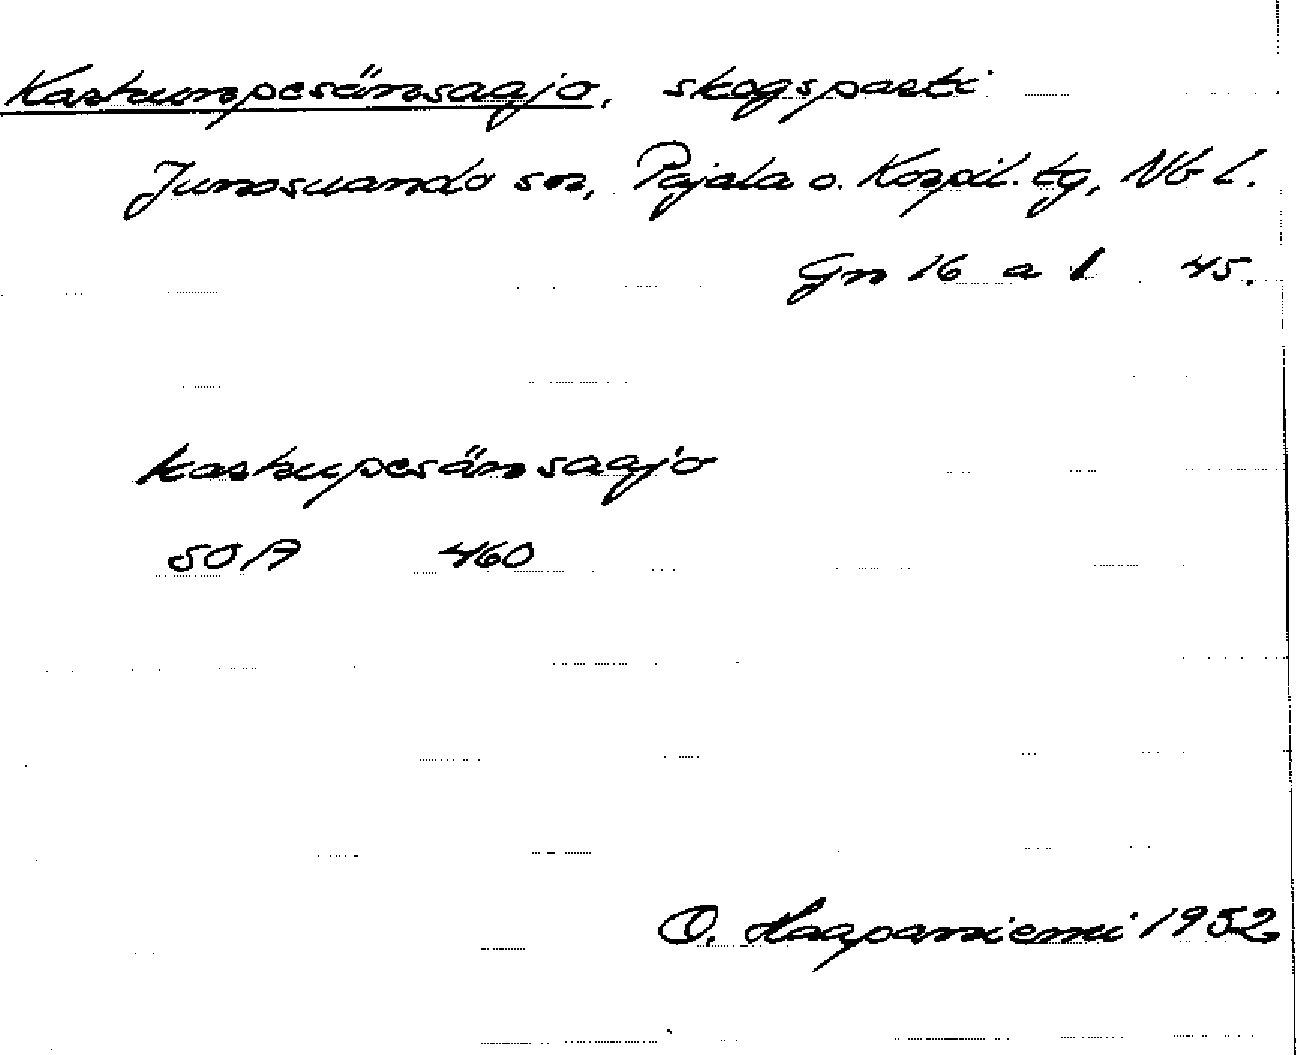 Kaskunpesänsaajo, skogsparti
Junosuando sn, Pajala o. Korpil. tg, Nb l.
Gn 16 a 1 45.
kaskupesänsaajo
50A 460
O. Haapaniemi 1952